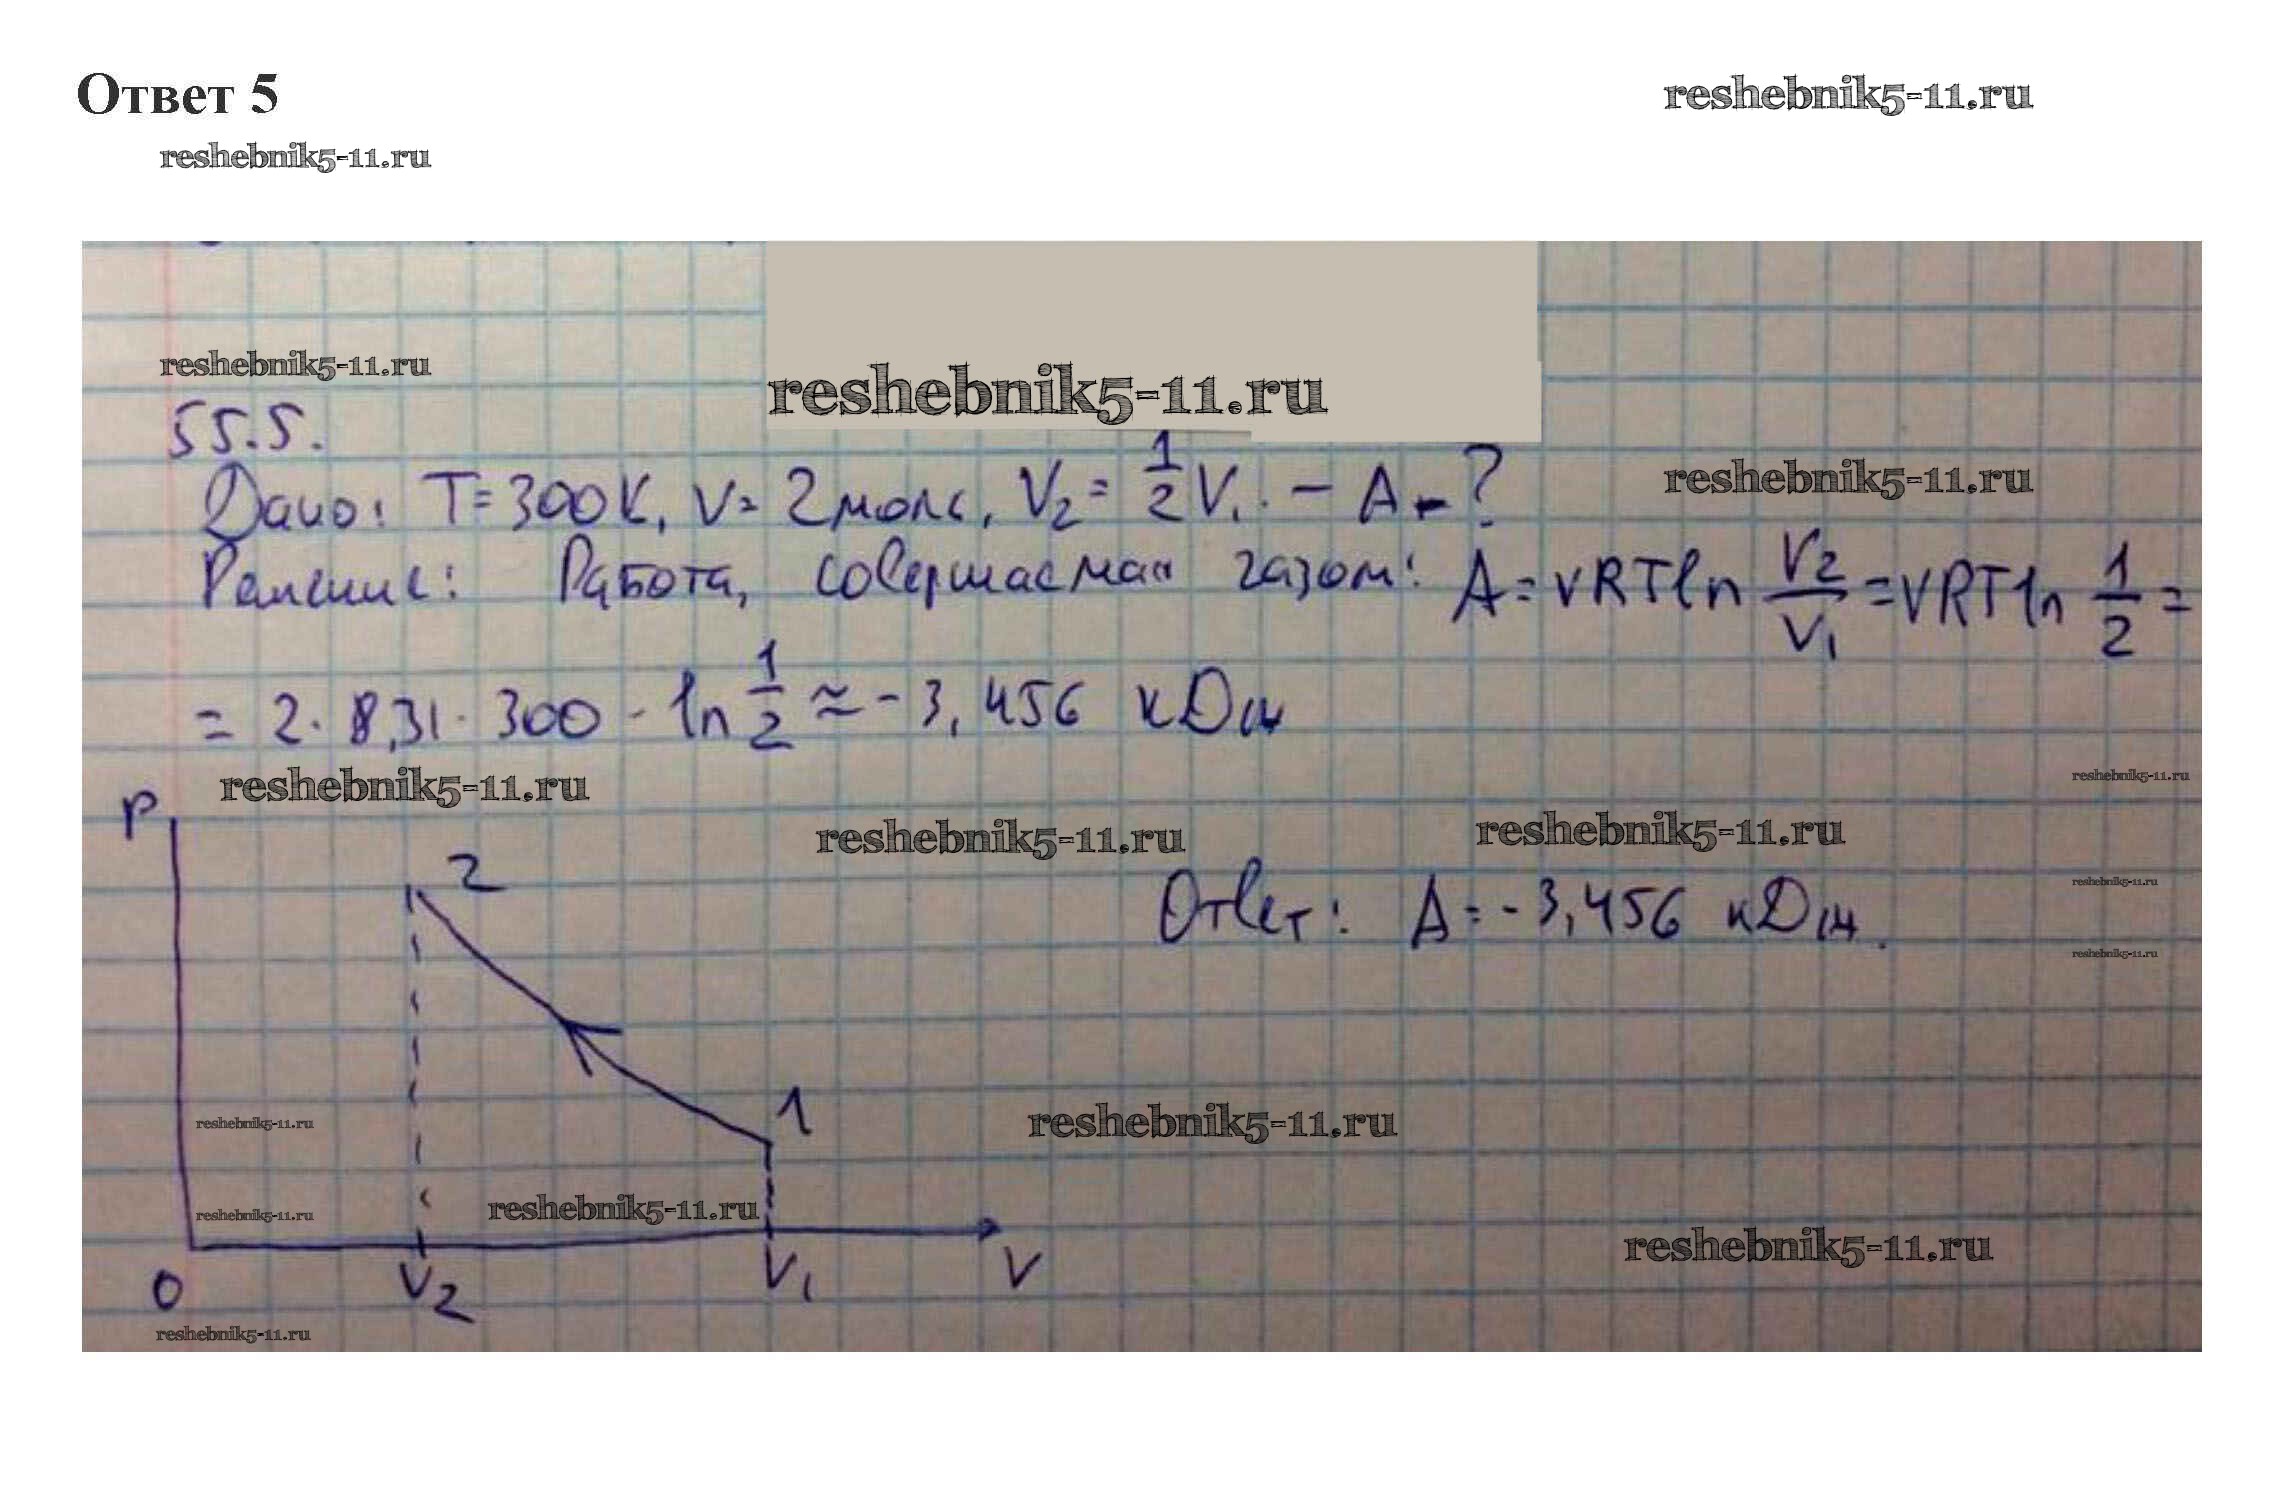 Ответ 5
reshebnik5-11.ru
reshebnik5-11.ru
reshebnik5-11.ru
reshebnik5-11.ru
55.5.
Дано: T=300K, ν=2моль, V₂=1/2V₁. – A-?
reshebnik5-11.ru
Решение: Работа, совершаемая газом: A=νRTln V₂/V₁=νRTln 1/2=
=2·8,31·300·ln 1/2≈-3,456 кДж
reshebnik5-11.ru
reshebnik5-11.ru
P
reshebnik5-11.ru
reshebnik5-11.ru
2
reshebnik5-11.ru
Ответ: A=-3,456 кДж.
reshebnik5-11.ru
1
reshebnik5-11.ru
reshebnik5-11.ru
reshebnik5-11.ru
reshebnik5-11.ru
reshebnik5-11.ru
0 V₂ V₁ V
reshebnik5-11.ru